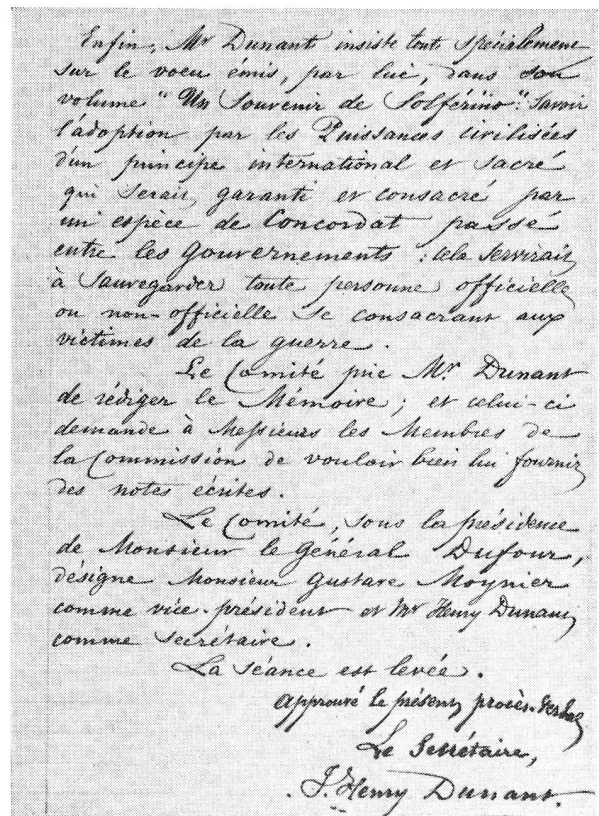 Enfin, Mr Dunant insiste tout spécialement
sur le voeu émis, par lui, dans son
volume "Un Souvenir de Solférino": savoir
l'adoption par les Puissances civilisées
d'un principe international et sacré
qui serait garanti et consacré par
un espèce de Concordat passé
entre les Gouvernements : cela servirait
à sauvegarder toute personne officielle
ou non-officielle se consacrant aux
victimes de la guerre.
Le Comité prie Mr Dunant
de rédiger le Mémoire; et celui-ci
demande à Messieurs les Membres de
la Commission de vouloir bien lui fournir
des notes écrites.
Le Comité, sous la présidence
de Monsieur le Général Dufour,
désigne Monsieur Gustave Moynier
comme vice-président et Mr Henry Dunant
comme secrétaire.
La séance est levée.
Approuvé le présent procès-verbal
Le Secrétaire,
J. Henry Dunant.